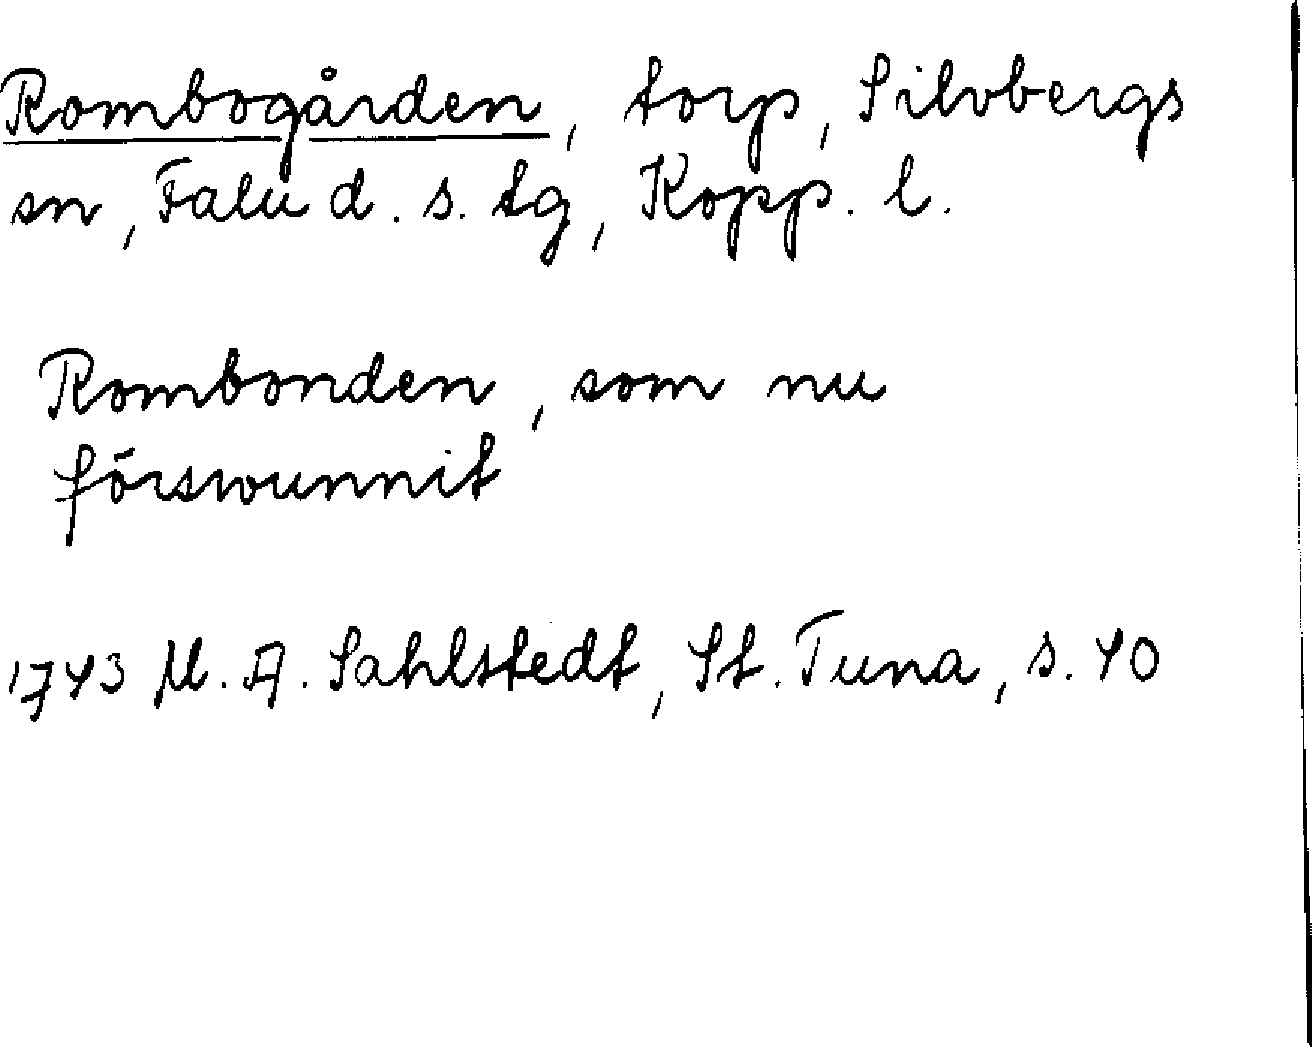 Rombogården, torp, Silvbergs
sn, Falu d. s. tg, Kopp. l.
Rombonden, som nu
förswunnit
1743 M. A. Sahlstedt, St. Tuna, s. 40